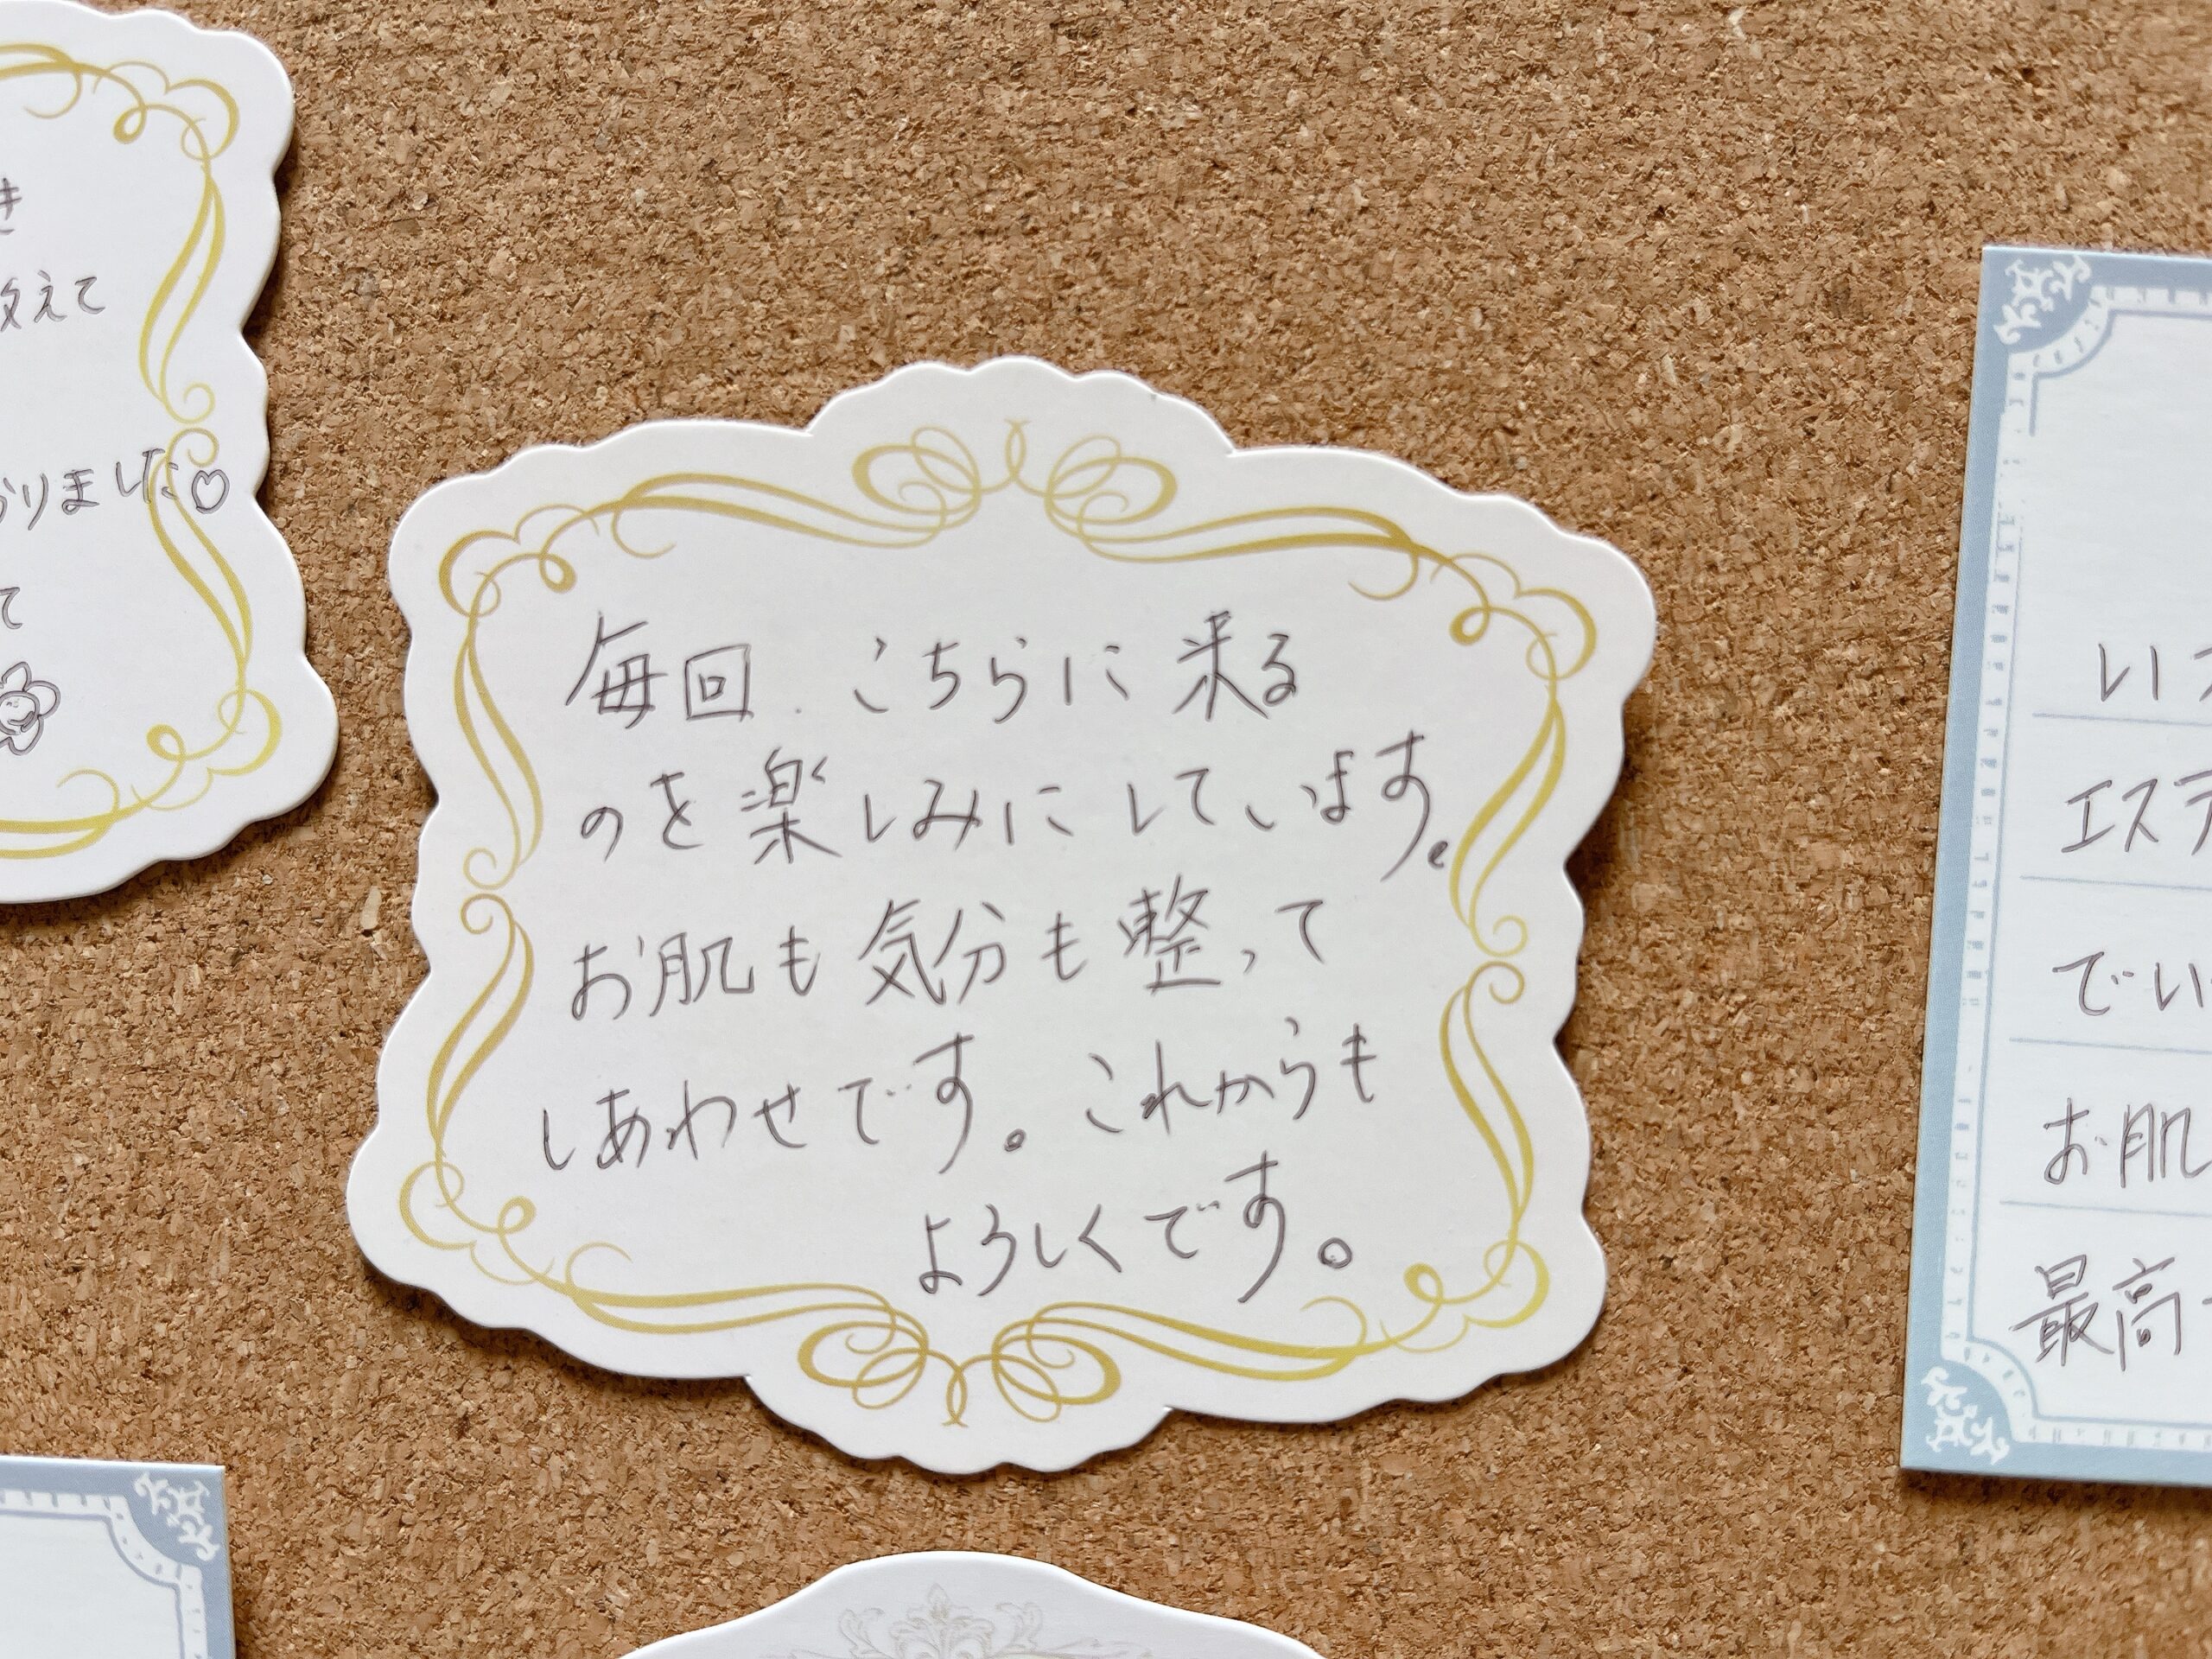 き
教えて
かりました♡
て
毎回、こちらに来る
のを楽しみにしています。
お肌も気分も整って
しあわせです。これからも
よろしくです。
い
エステ
でい
お肌
最高